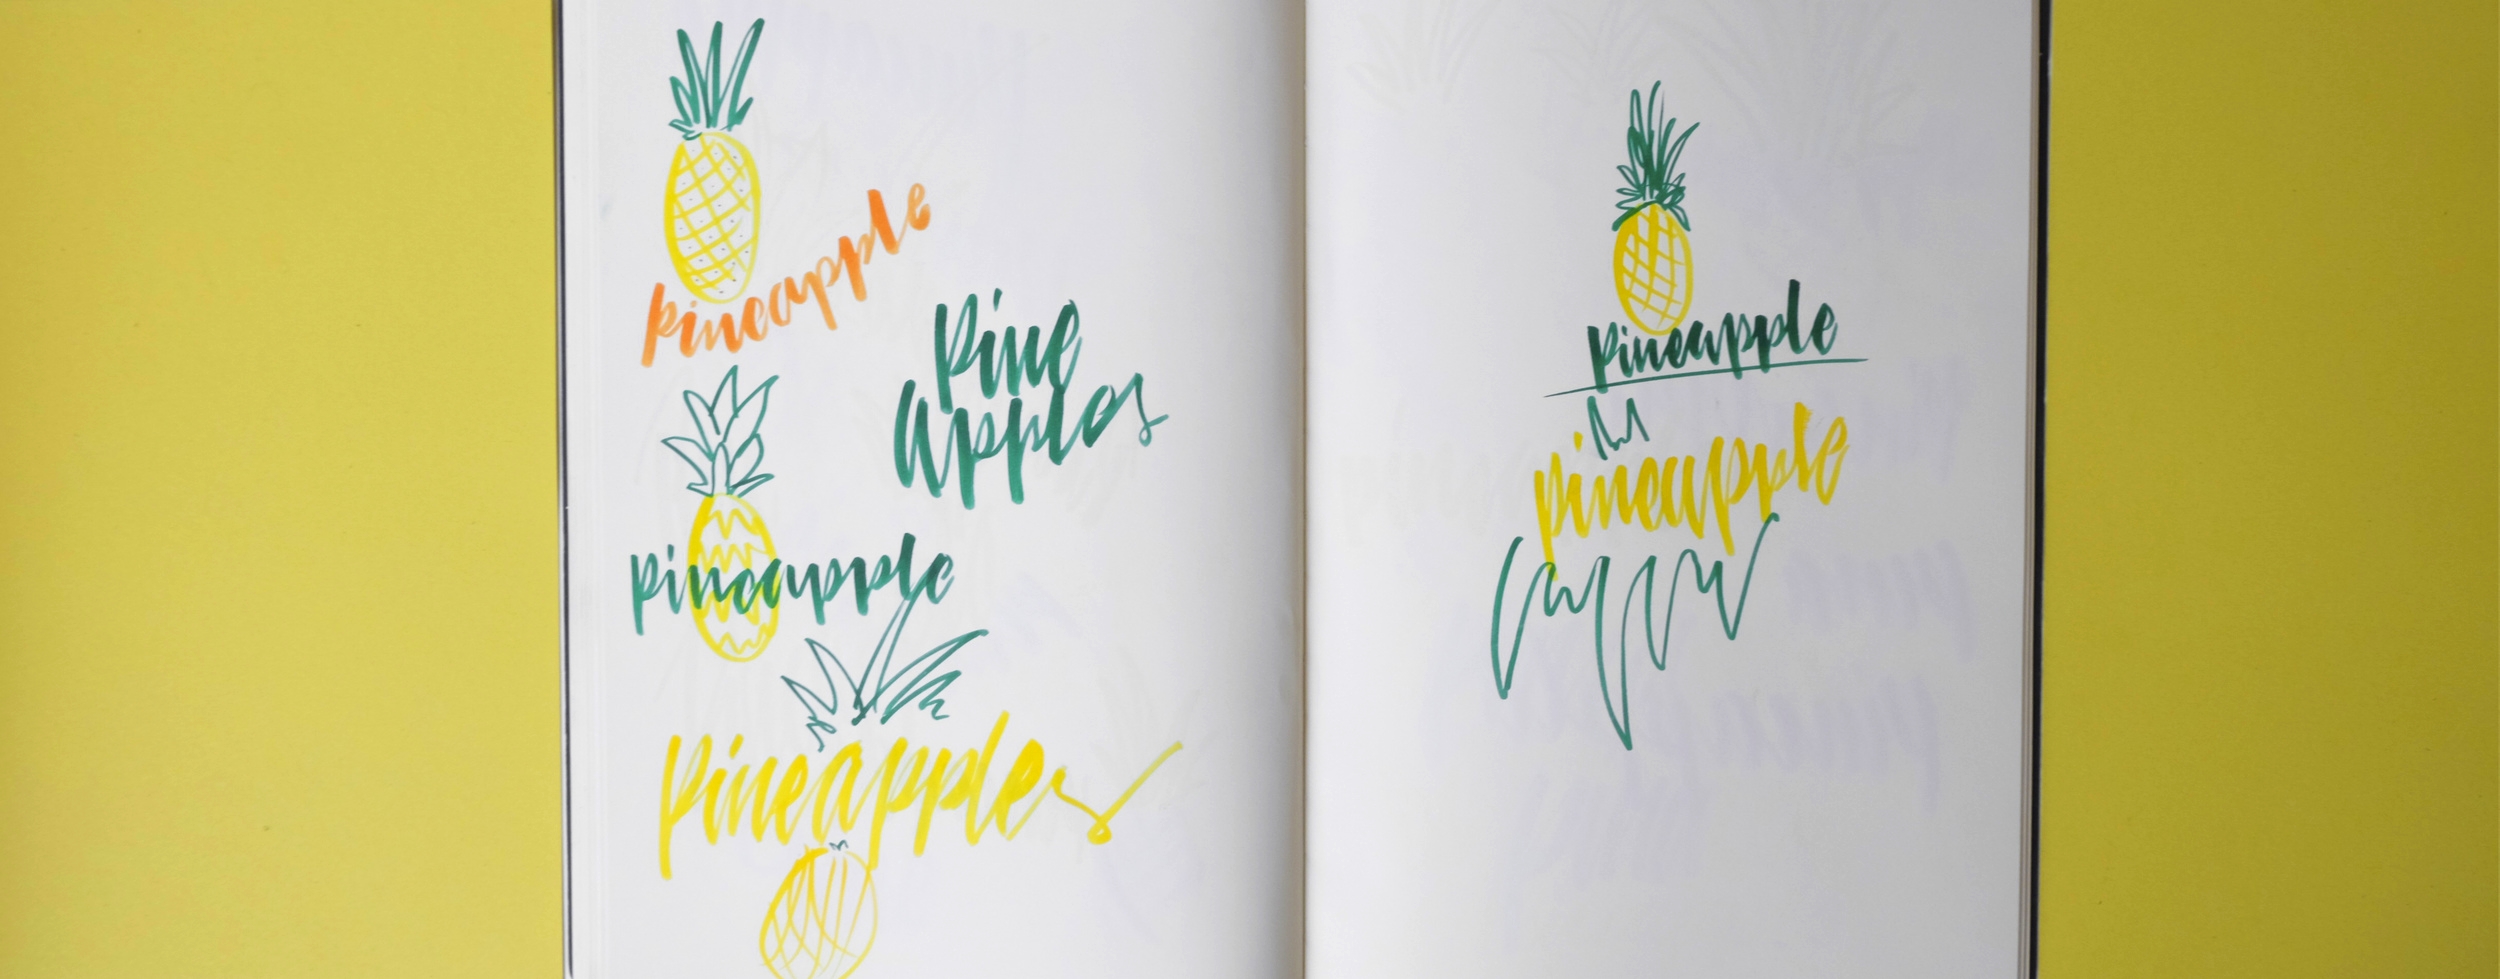 pineapple
pine
apples
pineapple
pineapples
pineapple
pineapple